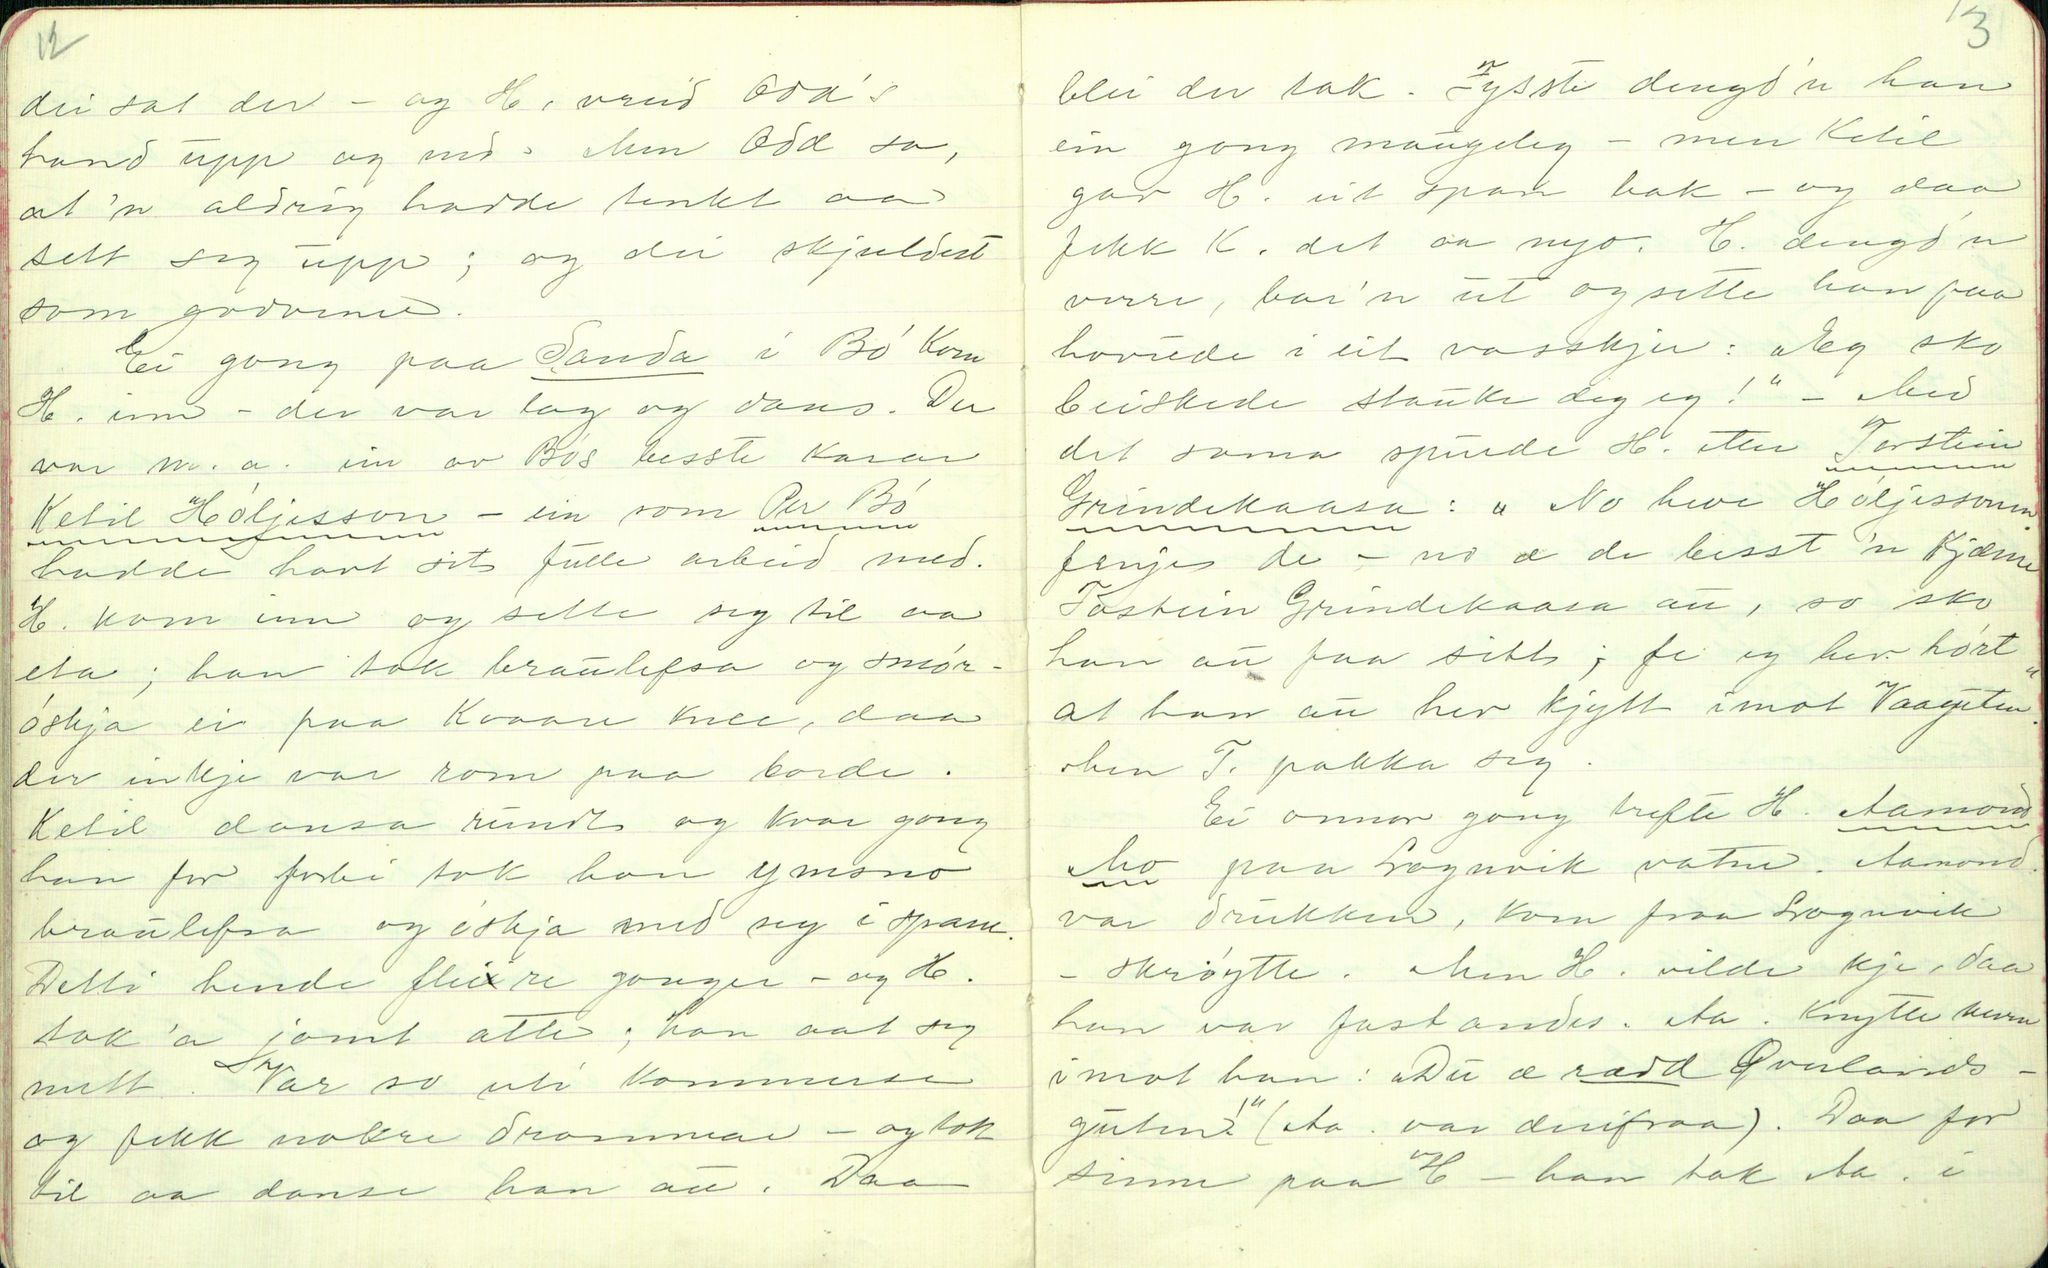 12
dei sat der – og H. vreid Odd's
hand upp og ned. Men Odd sa,
at 'n aldrig hadde tenkt aa
sett seg upp; og dei skjuldest
som godvener.
Ei gong paa Sanda i Bó kom
H. inn – der var lag og dans. Der
var m. a. ein av Bós besste karar
Ketil Hóljesson – ein som Per Bó
hadde havt sit fulle arbeid med.
H. kom inn og sette seg til aa
eta; han tok braulefsa og smór-
óskja ei paa kvaare knee, daa
der inkje var rom paa borde.
Ketil dansa rundt og kvar gong
han for forbi tok han ymsno
braulefsa og óskja med seg i spann.
Detti hende fleire gonger – og H.
tok 'a jamt atte; han aat seg
mett. Var so uti kommersen
og fekk nokre drammear – og tok
til aa danse han au. Daa
13
blei der tak. Fysste dengd'n han
ein gong maugeleg – men Ketil
gav H. eit spark bak – og daa
fekk K. det aa nyo. H. dengd'n
verre, bar'n ut og sette han paa
hovude i eit vasskjer: „Eg sko
beiskede stauke deg eg!“ – Med
det sama spurde H. etter Torstein
Grindekaasa: „No heve Hóljessonen
fengje de – no æ de besst 'n kjæme
Tostein Grindekaasa au, so sko
han au faa sitt; fe eg hev hórt
at han au hev kjytt imot Vaaguten.“
Men T. pakka seg.
Ei onnor gong trefte H. Aamond
Mo paa Lognvik vatne. Aamond
var drukken, kom fraa Lognvik
– skróytte. Men H. vilde kje, daa
han var fastandes. Aa. knytte neven
imot han: „Du æ rædd Øverlands-
guten!“ (Aa. var derifraa). Daa for
sinne paa H – han tok Aa. i